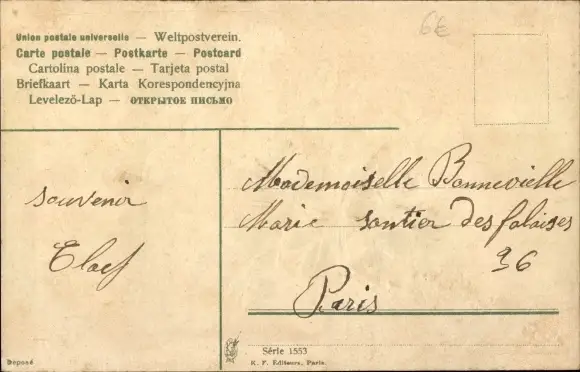 6€
Union postale universelle — Weltpostverein.
Carte postale — Postkarte — Postcard
Cartolina postale — Tarjeta postal
Briefkaart — Karta Korespondencyjna
Levelező-Lap — ОТКРЫТОЕ ПИСЬМО
souvenir
Mademoiselle Bonnevielle
Marie santier des falaises
36
Paris
Série 1553
Déposé
K. F. Editeurs, Paris.